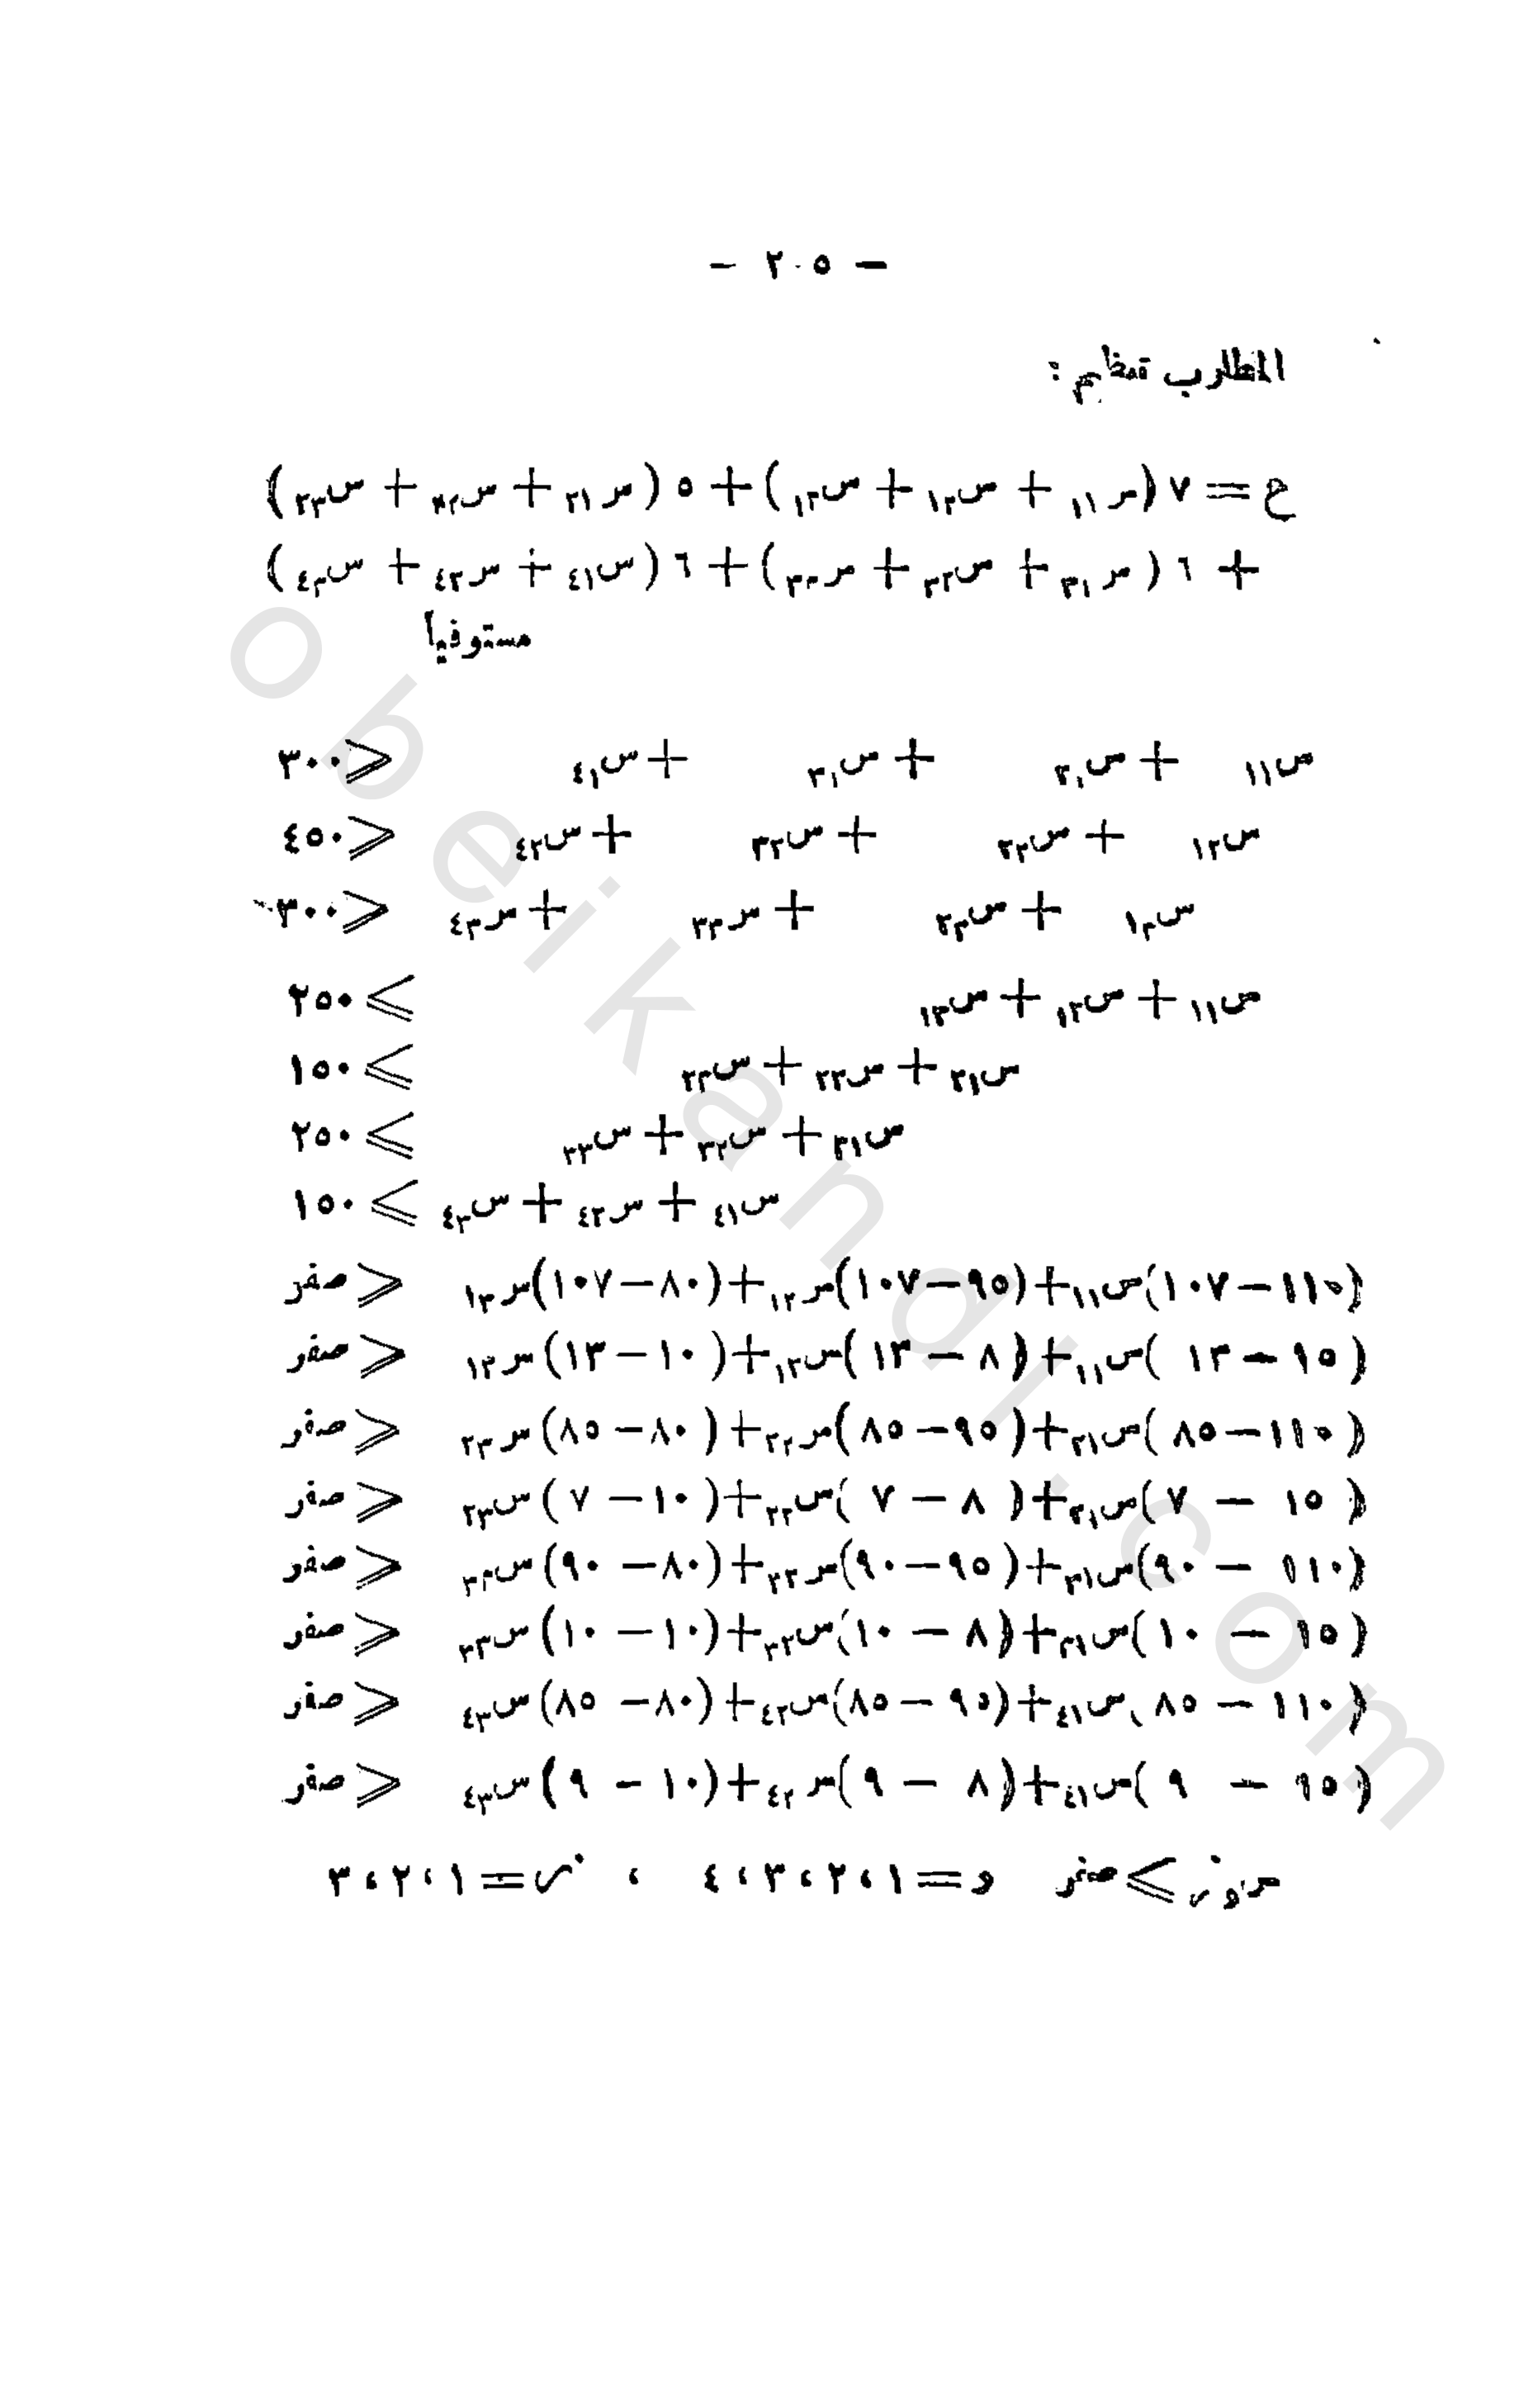 — ٢٠٥ —
المطلوب تعظيم :
ع = ٧ (س١١ + س١٢ + س١٣) + ٥ (س٢١ + س٢٢ + س٢٣)
+ ٦ (س٣١ + س٣٢ + س٣٣) + ٦ (س٤١ + س٤٢ + س٤٣)
مستوفياً
س١١ + س٢١ + س٣١ + س٤١ ≤ ٣٠٠
س١٢ + س٢٢ + س٣٢ + س٤٢ ≤ ٤٥٠
س١٣ + س٢٣ + س٣٣ + س٤٣ ≤ ٣٠٠
س١١ + س١٢ + س١٣ ≥ ٢٥٠
س٢١ + س٢٢ + س٢٣ ≥ ١٥٠
س٣١ + س٣٢ + س٣٣ ≥ ٢٥٠
س٤١ + س٤٢ + س٤٣ ≥ ١٥٠
(١١٠ — ١٠٧) س١١ + (٩٥ — ١٠٧) س١٢ + (٨٠ — ١٠٧) س١٣ ≤ صفر
(١٥ — ١٣) س١١ + (٨ — ١٣) س١٢ + (١٠ — ١٣) س١٣ ≤ صفر
(١١٠ — ٨٥) س٢١ + (٩٥ — ٨٥) س٢٢ + (٨٠ — ٨٥) س٢٣ ≤ صفر
(١٥ — ٧) س٢١ + (٨ — ٧) س٢٢ + (١٠ — ٧) س٢٣ ≤ صفر
(١١٠ — ٩٠) س٣١ + (٩٥ — ٩٠) س٣٢ + (٨٠ — ٩٠) س٣٣ ≤ صفر
(١٥ — ١٠) س٣١ + (٨ — ١٠) س٣٢ + (١٠ — ١٠) س٣٣ ≤ صفر
(١١٠ — ٨٥) س٤١ + (٩٥ — ٨٥) س٤٢ + (٨٠ — ٨٥) س٤٣ ≤ صفر
(١٥ — ٩) س٤١ + (٨ — ٩) س٤٢ + (١٠ — ٩) س٤٣ ≤ صفر
≥ صفر و = ١،٢،٣،٤ ، = ١،٢،٣
obeikandi.com